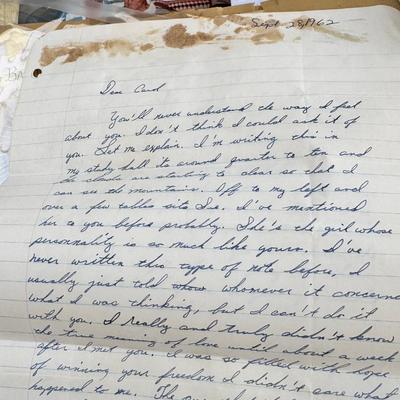 Sept 28, 1962
Dear Carol
You'll never understand the way I feel
about you. I don't think I could ask it of
you. Let me explain. I'm writing this in
my study hall its around quarter to ten and
the clouds are starting to clear so that I
can see the mountains. Off to my left and
over a few tables sits Sue. I've mentioned
her to you before probably. She's the girl whose
personality is so much like yours. I've
never written this type of note before, I
usually just told whomever it concerne
what I was thinking, but I can't do it
with you. I really and truly didn't know
the true meaning of love until about a week
after I met you. I was so filled with hope
of winning your freedom I didn't care what
happened to me. The